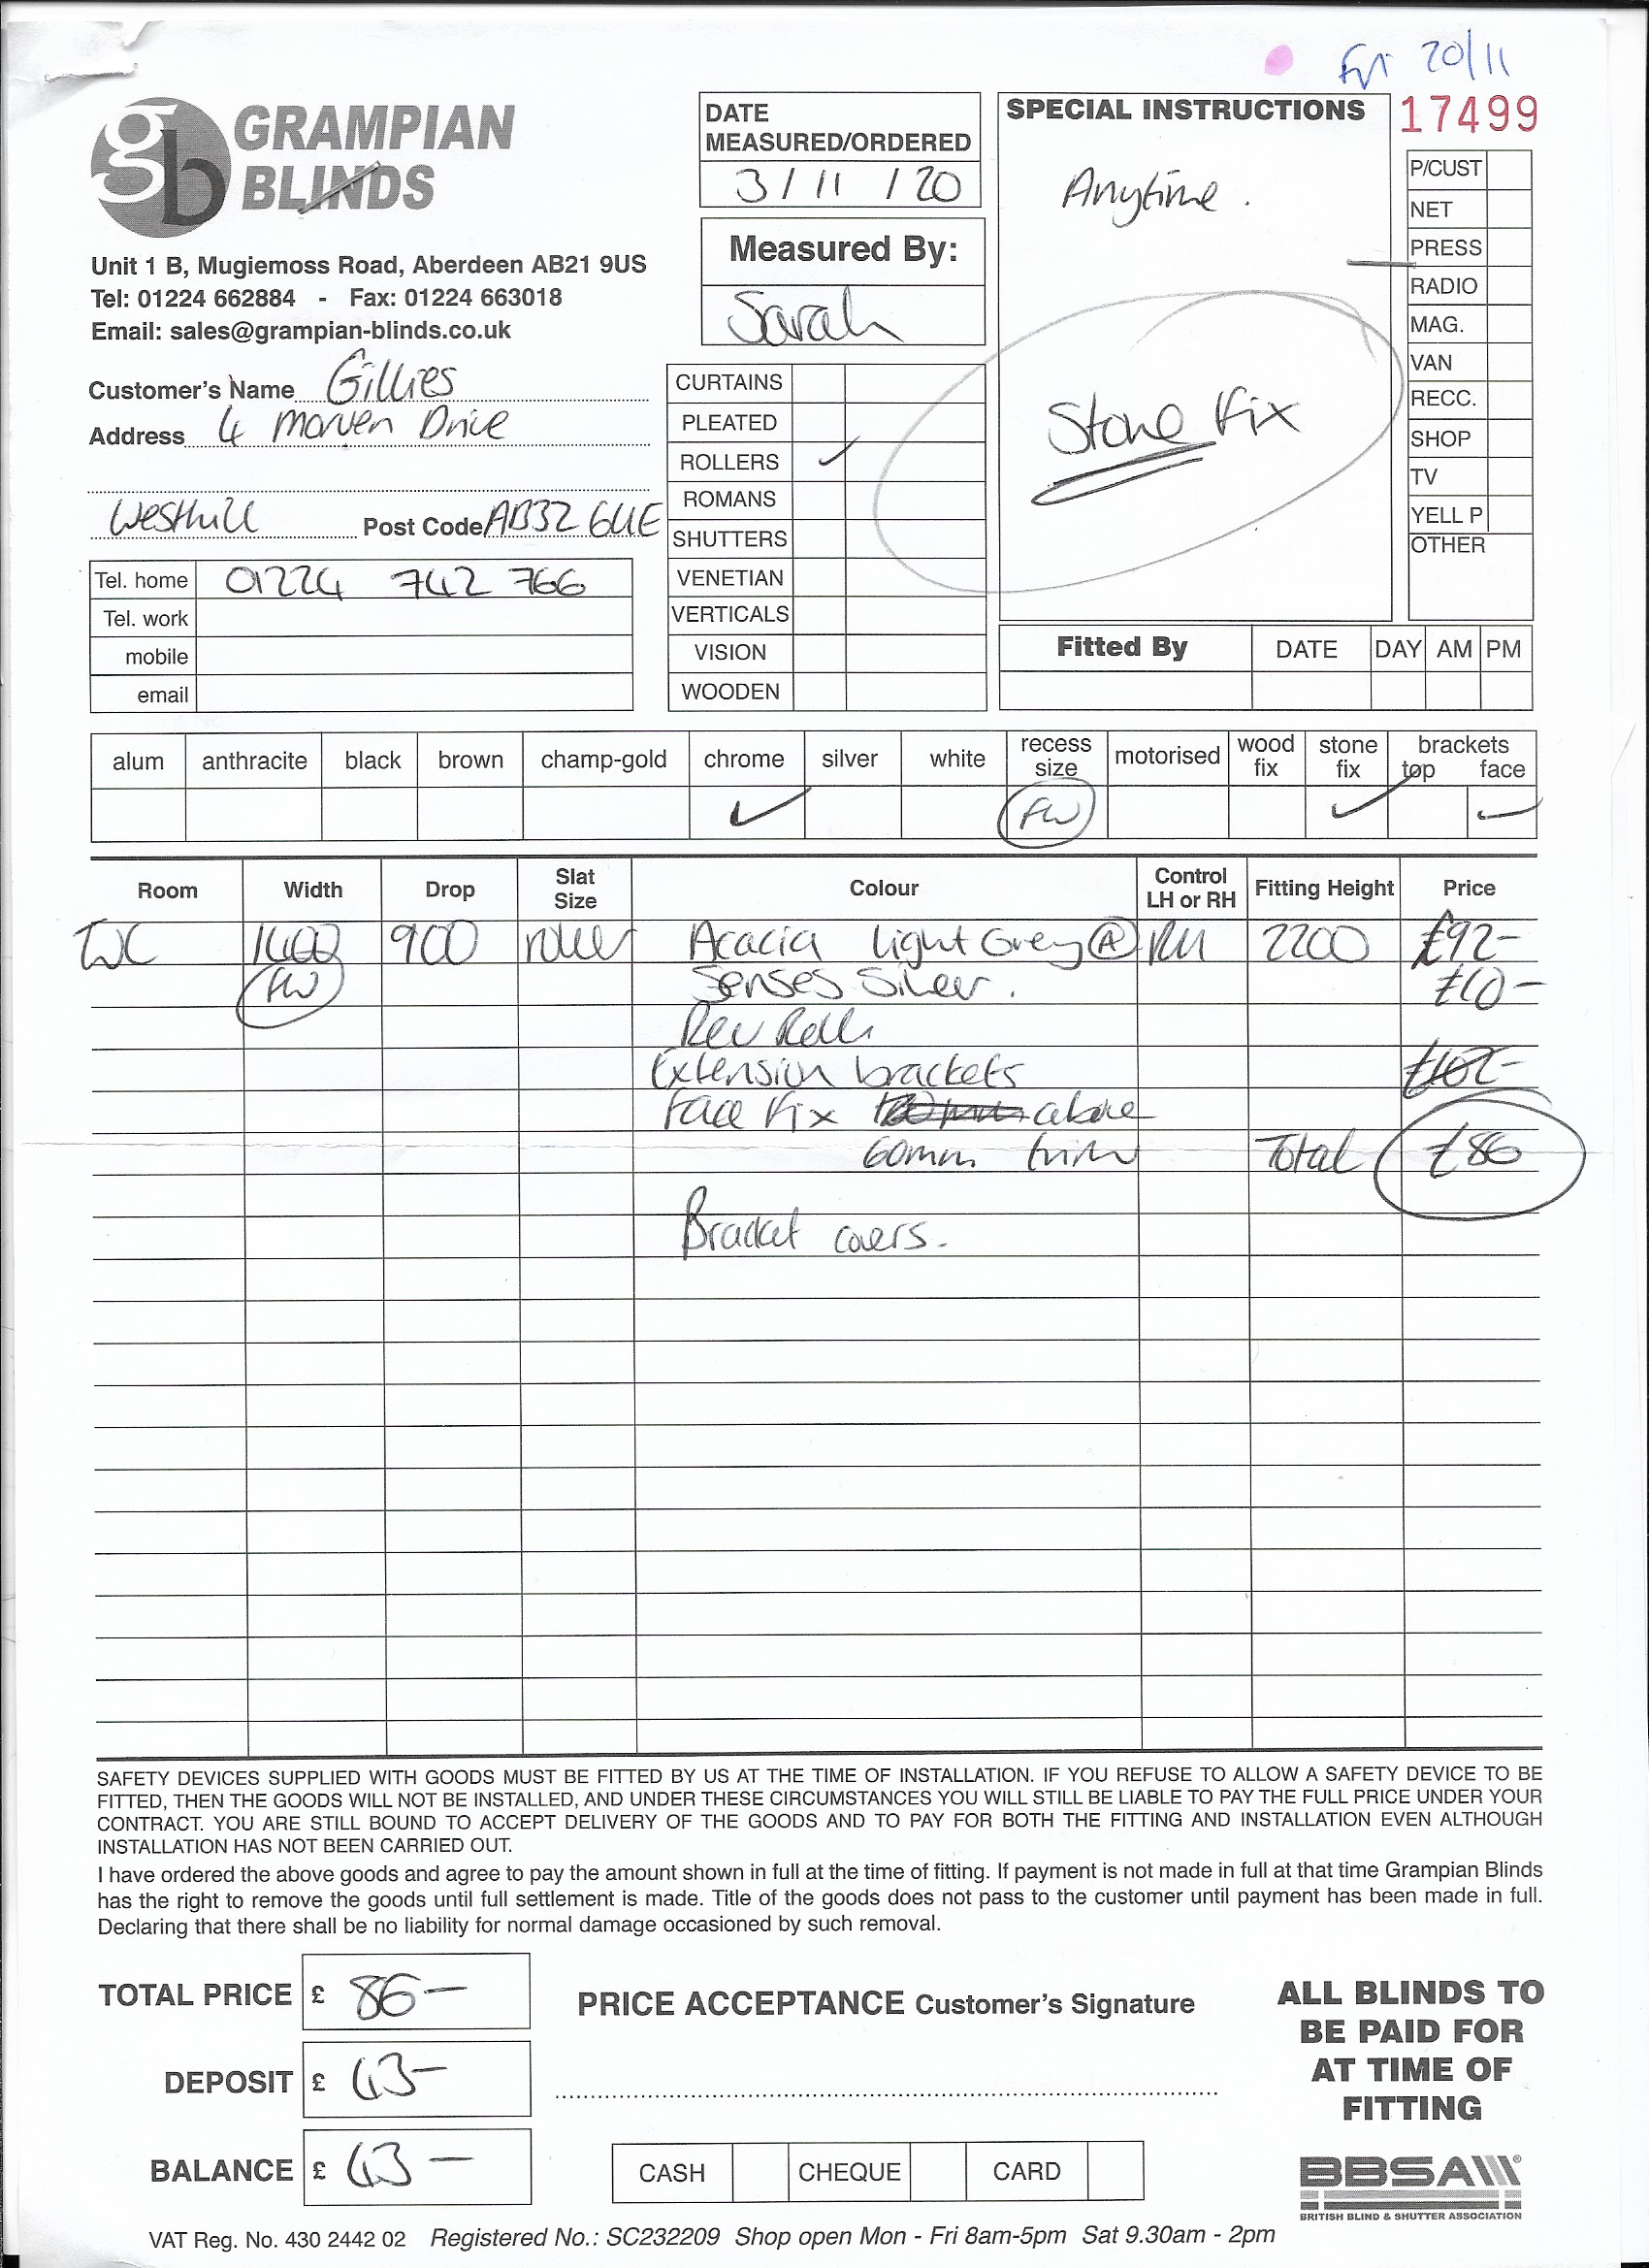 Fri 20/11
17499
gb GRAMPIAN
BLINDS
Unit 1 B, Mugiemoss Road, Aberdeen AB21 9US
Tel: 01224 662884 - Fax: 01224 663018
Email: sales@grampian-blinds.co.uk
Customer's Name Gillies
Address 4 Morven Drive
Westhill Post Code AB32 6UE
Tel. home 01224 742 766
Tel. work
mobile
email
DATE
MEASURED/ORDERED
3 / 11 / 20
Measured By:
Sarah
CURTAINS
PLEATED
ROLLERS ✓
ROMANS
SHUTTERS
VENETIAN
VERTICALS
VISION
WOODEN
SPECIAL INSTRUCTIONS
Anytime.
Stone Fix
P/CUST
NET
PRESS
RADIO
MAG.
VAN
RECC.
SHOP
TV
YELL P
OTHER
Fitted By DATE DAY AM PM
alum anthracite black brown champ-gold chrome silver white recess size motorised wood fix stone fix brackets top face
✓ FW ✓ ✓
Room Width Drop Slat Size Colour Control LH or RH Fitting Height Price
WC 1400 900 roller Acacia Light Grey @ A RH 2200 £92-
FW Senses Silver. £10-
Rev Roll
Extension brackets £102-
Face Fix above
60mm trim Total £86
Bracket covers.
SAFETY DEVICES SUPPLIED WITH GOODS MUST BE FITTED BY US AT THE TIME OF INSTALLATION. IF YOU REFUSE TO ALLOW A SAFETY DEVICE TO BE
FITTED, THEN THE GOODS WILL NOT BE INSTALLED, AND UNDER THESE CIRCUMSTANCES YOU WILL STILL BE LIABLE TO PAY THE FULL PRICE UNDER YOUR
CONTRACT. YOU ARE STILL BOUND TO ACCEPT DELIVERY OF THE GOODS AND TO PAY FOR BOTH THE FITTING AND INSTALLATION EVEN ALTHOUGH
INSTALLATION HAS NOT BEEN CARRIED OUT.
I have ordered the above goods and agree to pay the amount shown in full at the time of fitting. If payment is not made in full at that time Grampian Blinds
has the right to remove the goods until full settlement is made. Title of the goods does not pass to the customer until payment has been made in full.
Declaring that there shall be no liability for normal damage occasioned by such removal.
TOTAL PRICE £ 86-
DEPOSIT £ 43-
BALANCE £ 43-
PRICE ACCEPTANCE Customer's Signature
CASH CHEQUE CARD
ALL BLINDS TO
BE PAID FOR
AT TIME OF
FITTING
BBSA
BRITISH BLIND & SHUTTER ASSOCIATION
VAT Reg. No. 430 2442 02 Registered No.: SC232209 Shop open Mon - Fri 8am-5pm Sat 9.30am - 2pm